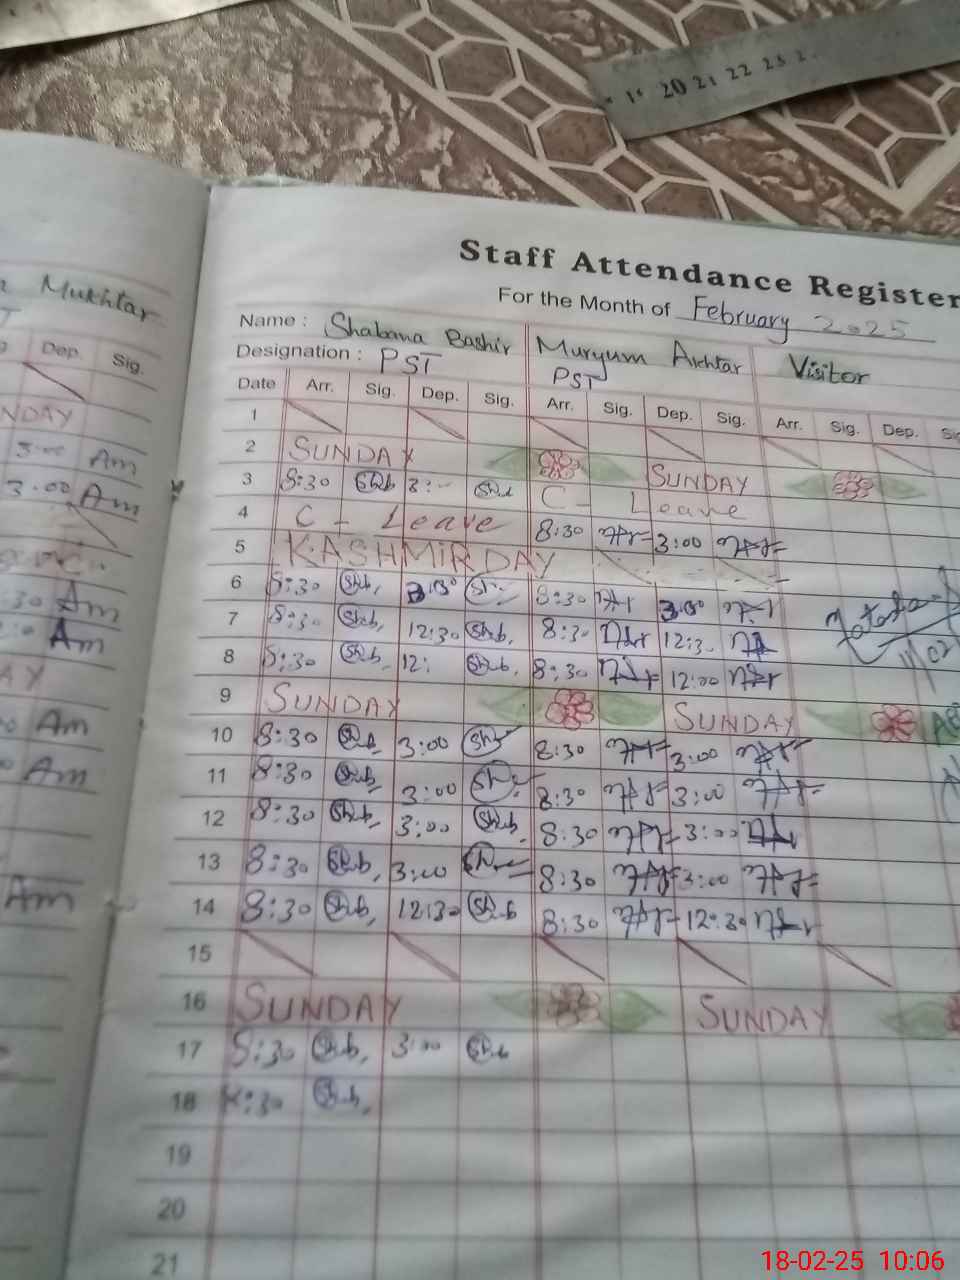 20 21 22 23 2
Staff Attendance Register
For the Month of February 2025
Mukhtar
Name : Shabana Bashir Muryum Akhtar Visitor
Designation : PST PST
Dep. Sig.
Date Arr. Sig. Dep. Sig. Arr. Sig. Dep. Sig. Arr. Sig. Dep.
1
NDAY
2 SUNDAY SUNDAY
3:00 Am
3 8:30 Shb 3: C - Leave
3.00 Am
4 C - Leave 8:30 3:00
5 KASHMIR DAY
6 8:30 Shb, 3:00 8:30 3:00
:30 Am
7 8:30 Shb, 12:30 Shb, 8:30 12:30
Am
8 8:30 Shb, 12: Shb, 8:30 12:00
AY
9 SUNDAY SUNDAY
Am
10 8:30 Shb, 3:00 8:30 3:00
Am
11 8:30 Shb, 3:00 8:30 3:00
12 8:30 Shb, 3:00 Shb, 8:30 3:00
13 8:30 Shb, 3:00 8:30 3:00
Am
14 8:30 Shb, 12:30 Shb 8:30 12:30
15
16 SUNDAY SUNDAY
17 8:30 Shb, 3:00 Shb
18 8:30 Shb,
19
20
21
18-02-25 10:06